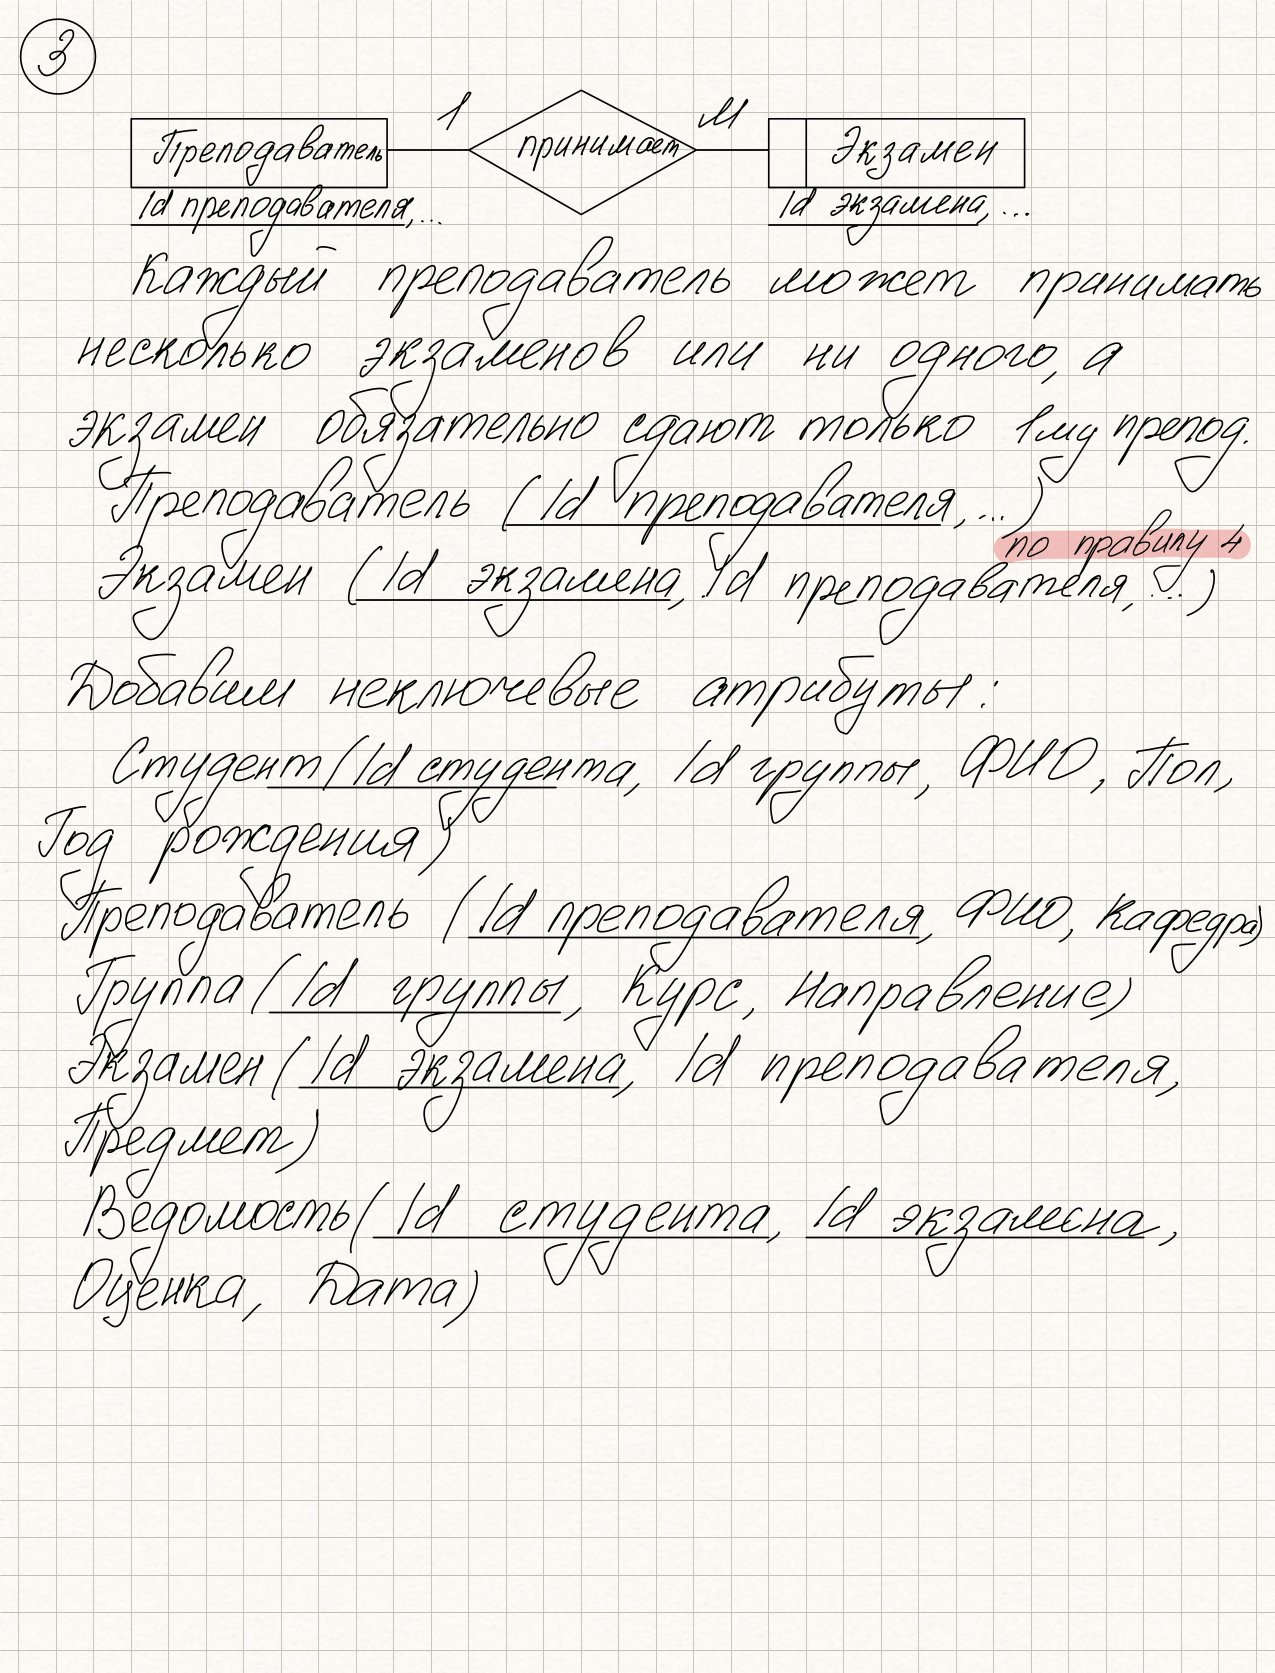 3
1 М
Преподаватель принимает Экзамен
Id преподавателя, ... Id экзамена, ...
Каждый преподаватель может принимать
несколько экзаменов или ни одного, а
экзамен обязательно сдают только 1му препод.
Преподаватель (Id преподавателя, ...)
по правилу 4
Экзамен (Id экзамена, Id преподавателя, ...)
Добавим неключевые атрибуты:
Студент (Id студента, Id группы, ФИО, Пол,
Год рождения)
Преподаватель (Id преподавателя, ФИО, Кафедра)
Группа (Id группы, Курс, Направление)
Экзамен (Id экзамена, Id преподавателя,
Предмет)
Ведомость (Id студента, Id экзамена,
Оценка, Дата)